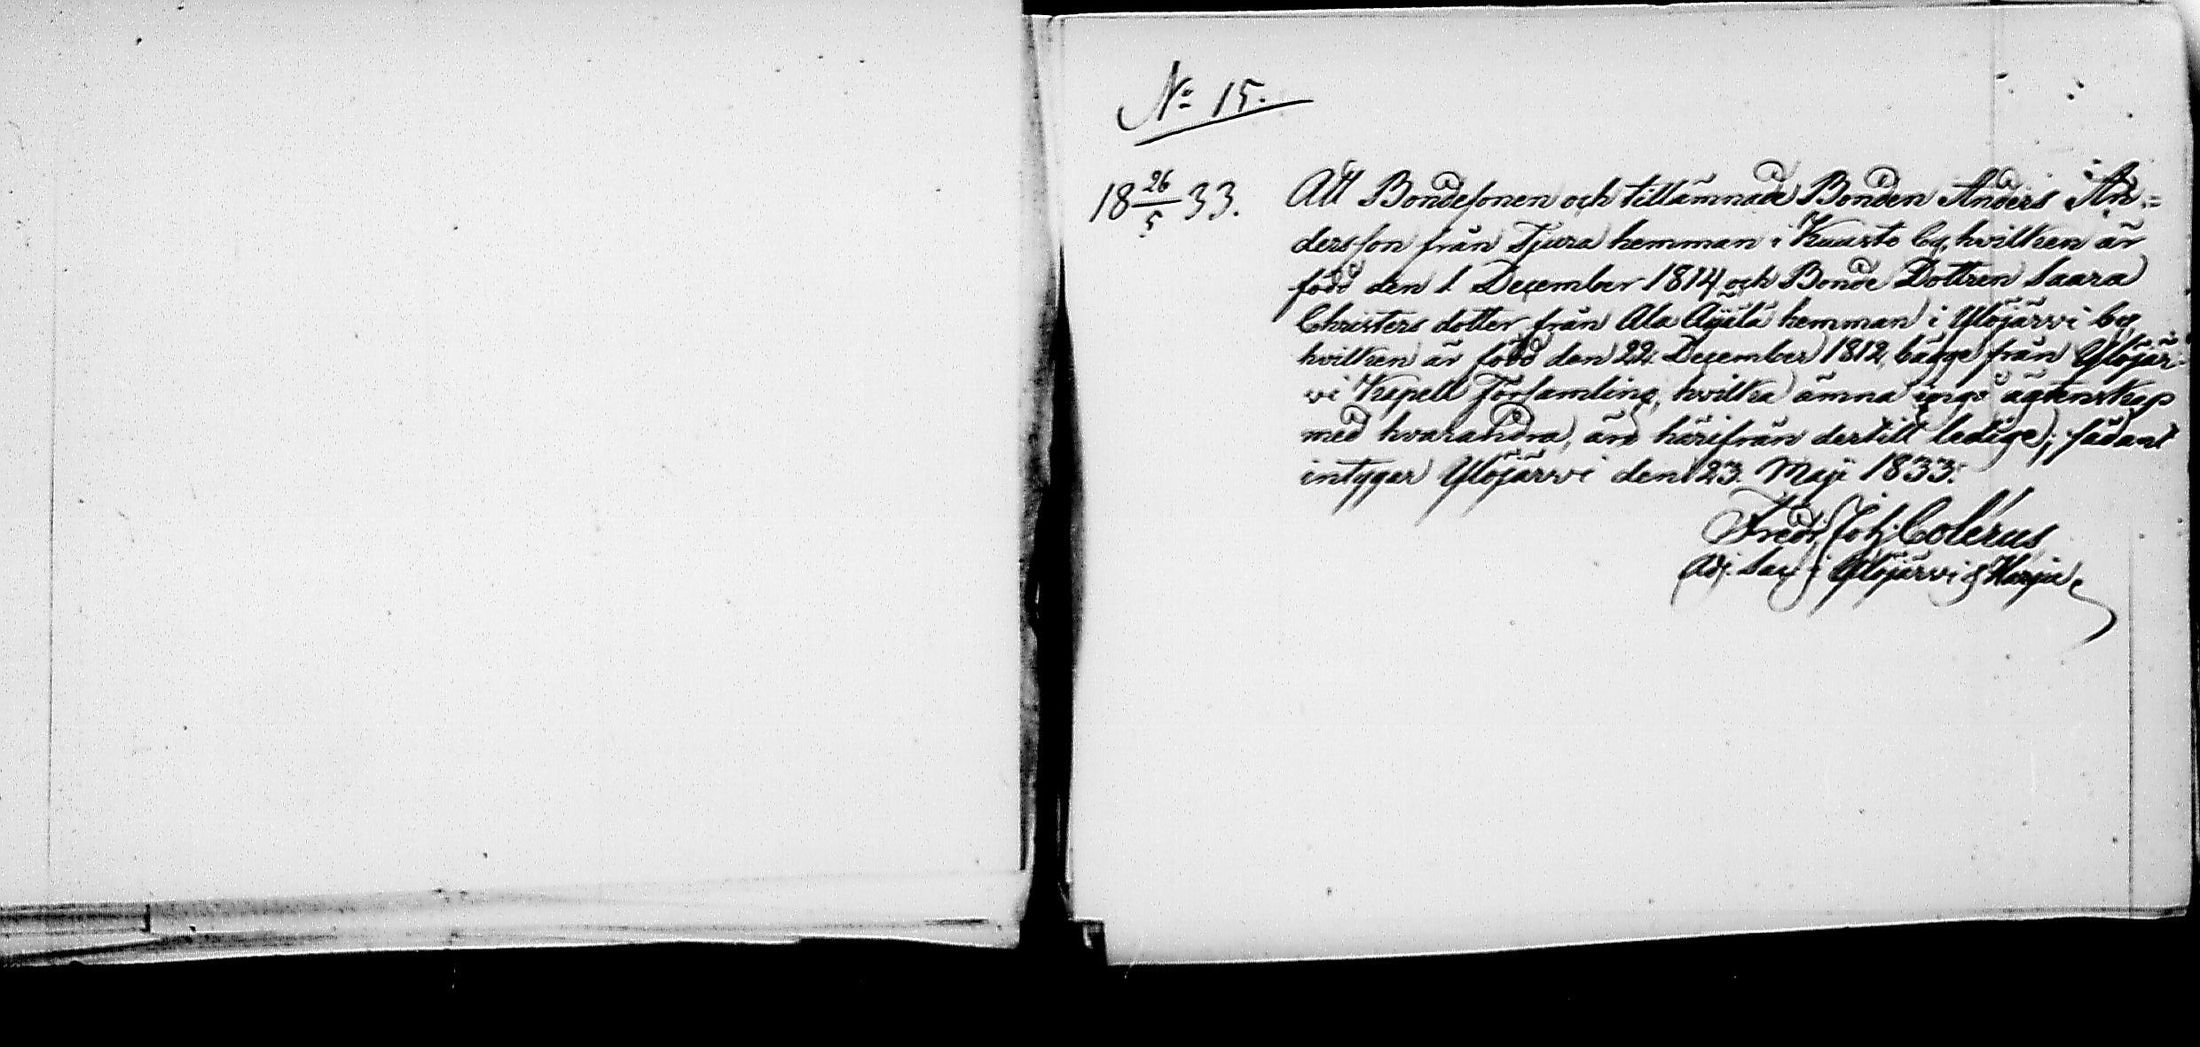 No 15.
18 26/5 33. Att Bondesonen och tillämnade Bonden Anders An=
dersson från Tjura hemman i Kuusto by, hvilken är
född den 1 December 1814 och Bonde Dottren Saara
Christers dotter från Ala Äijälä hemman i Ylöjärvi by
hvilken är född den 22. December 1812, bägge från Ylöjär-
vi Kapell Församling, hvilka ämna ingå ägtenskap
med hvarandra, äro härifrån dertill ledige; sådant
intygar Ylöjärvi den 23. Maji 1833.
Fredr. Joh. Colérus
Adj. Sac. i Ylöjärvi